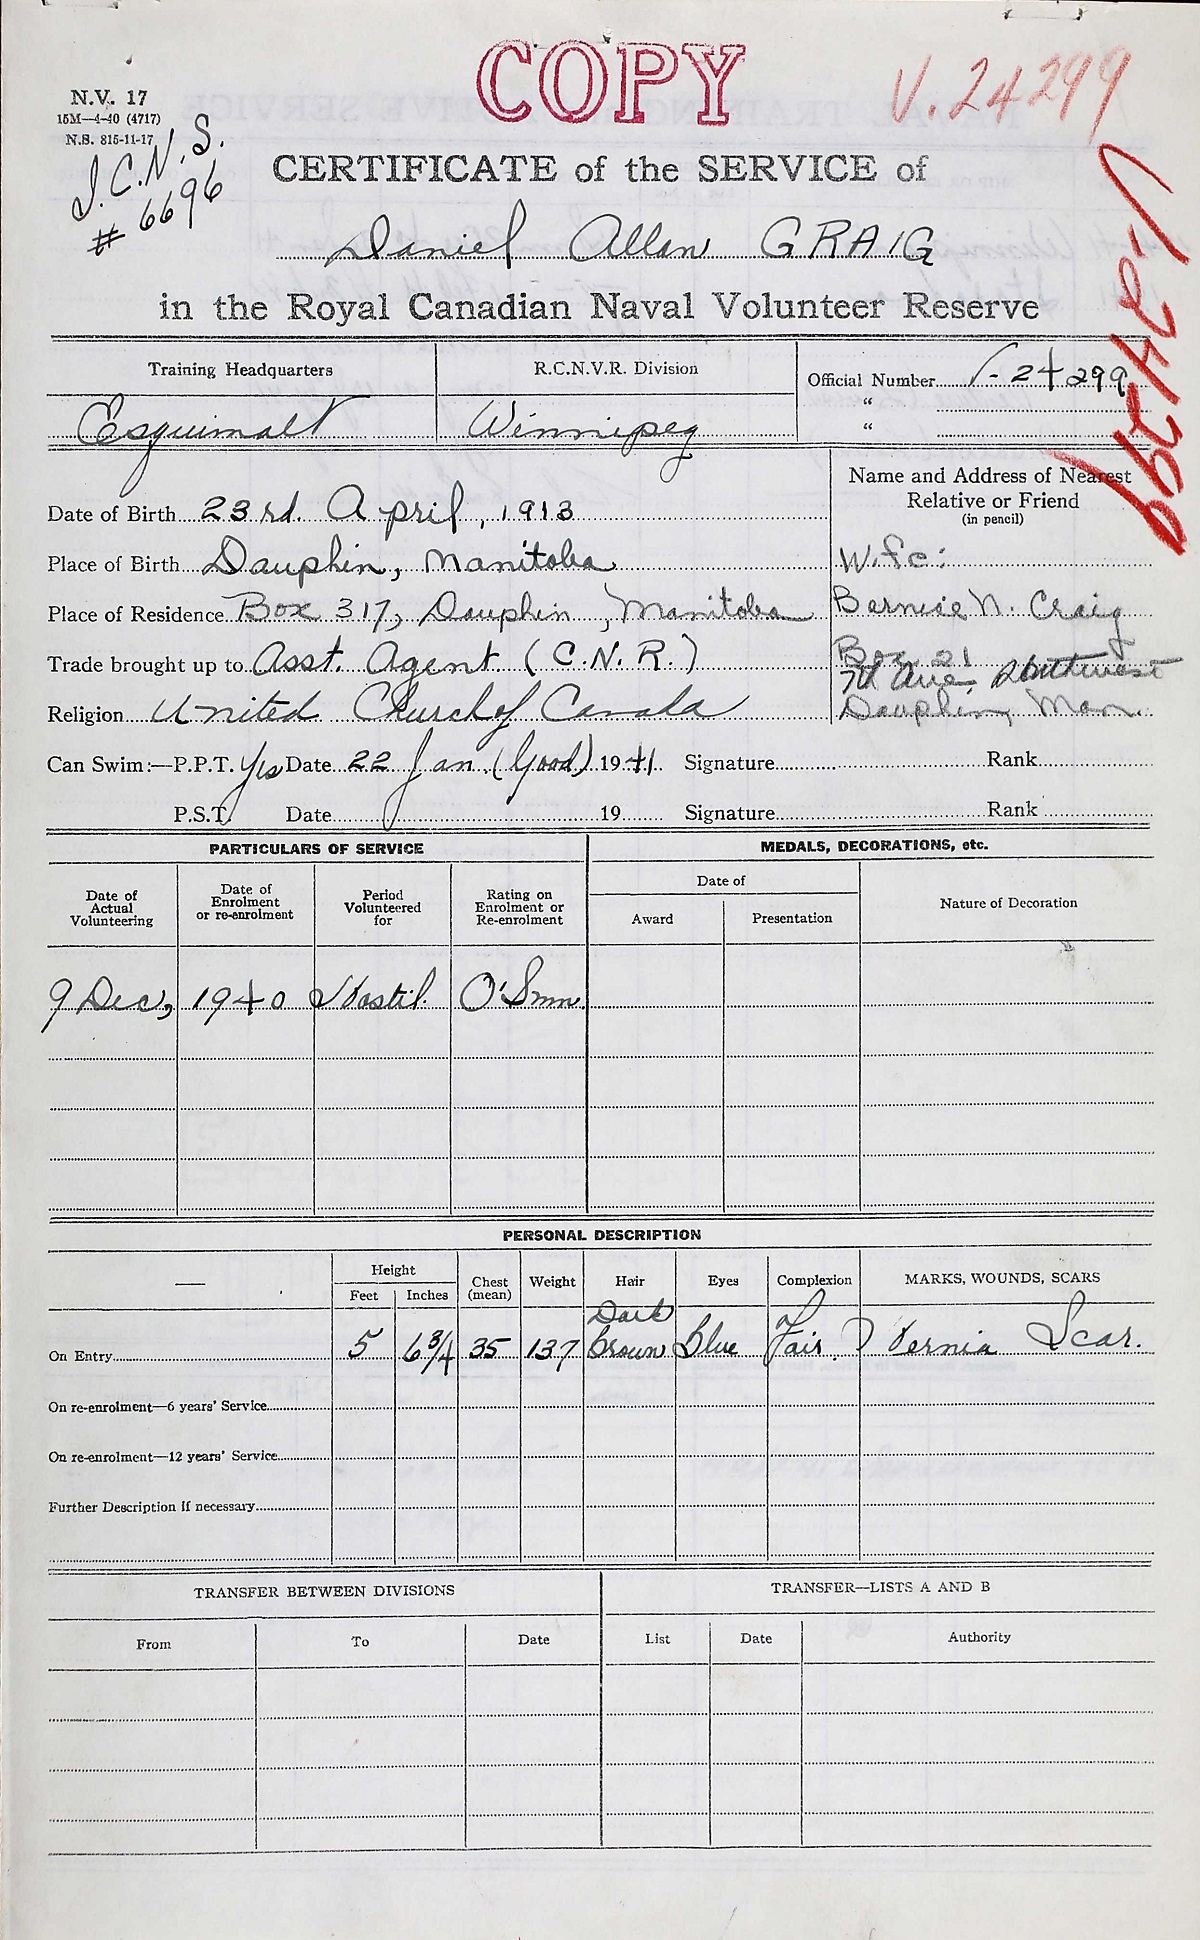 COPY
V. 24299
N.V. 17
15M—4-40 (4717)
N.S. 815-11-17
I.C.N.S.
# 6696
V24299
CERTIFICATE of the SERVICE of
Daniel Allan CRAIG
in the Royal Canadian Naval Volunteer Reserve
Training Headquarters
Esquimalt
R.C.N.V.R. Division
Winnipeg
Official Number V-24299
“
“
Date of Birth 23rd. April, 1913
Place of Birth Dauphin, Manitoba
Place of Residence Box 317, Dauphin, Manitoba
Trade brought up to Asst. Agent (C.N.R.)
Religion United Church of Canada
Name and Address of Nearest
Relative or Friend
(in pencil)
Wife:
Bernice N. Craig
Box 21
7th Ave. Southwest
Dauphin, Man.
Can Swim:—P.P.T. Yes Date 22 Jan. (Good) 1941 Signature Rank
P.S.T. Date 19 Signature Rank
PARTICULARS OF SERVICE
MEDALS, DECORATIONS, etc.
Date of Actual Volunteering
Date of Enrolment or re-enrolment
Period Volunteered for
Rating on Enrolment or Re-enrolment
Date of
Award
Presentation
Nature of Decoration
9 Dec, 1940 Hostil. O'Smn
PERSONAL DESCRIPTION
Height
Feet
Inches
Chest (mean)
Weight
Hair
Eyes
Complexion
MARKS, WOUNDS, SCARS
On Entry 5 6 3/4 35 137 Dark brown Blue Fair. Hernia Scar.
On re-enrolment—6 years' Service
On re-enrolment—12 years' Service
Further Description if necessary
TRANSFER BETWEEN DIVISIONS
TRANSFER—LISTS A AND B
From
To
Date
List
Date
Authority